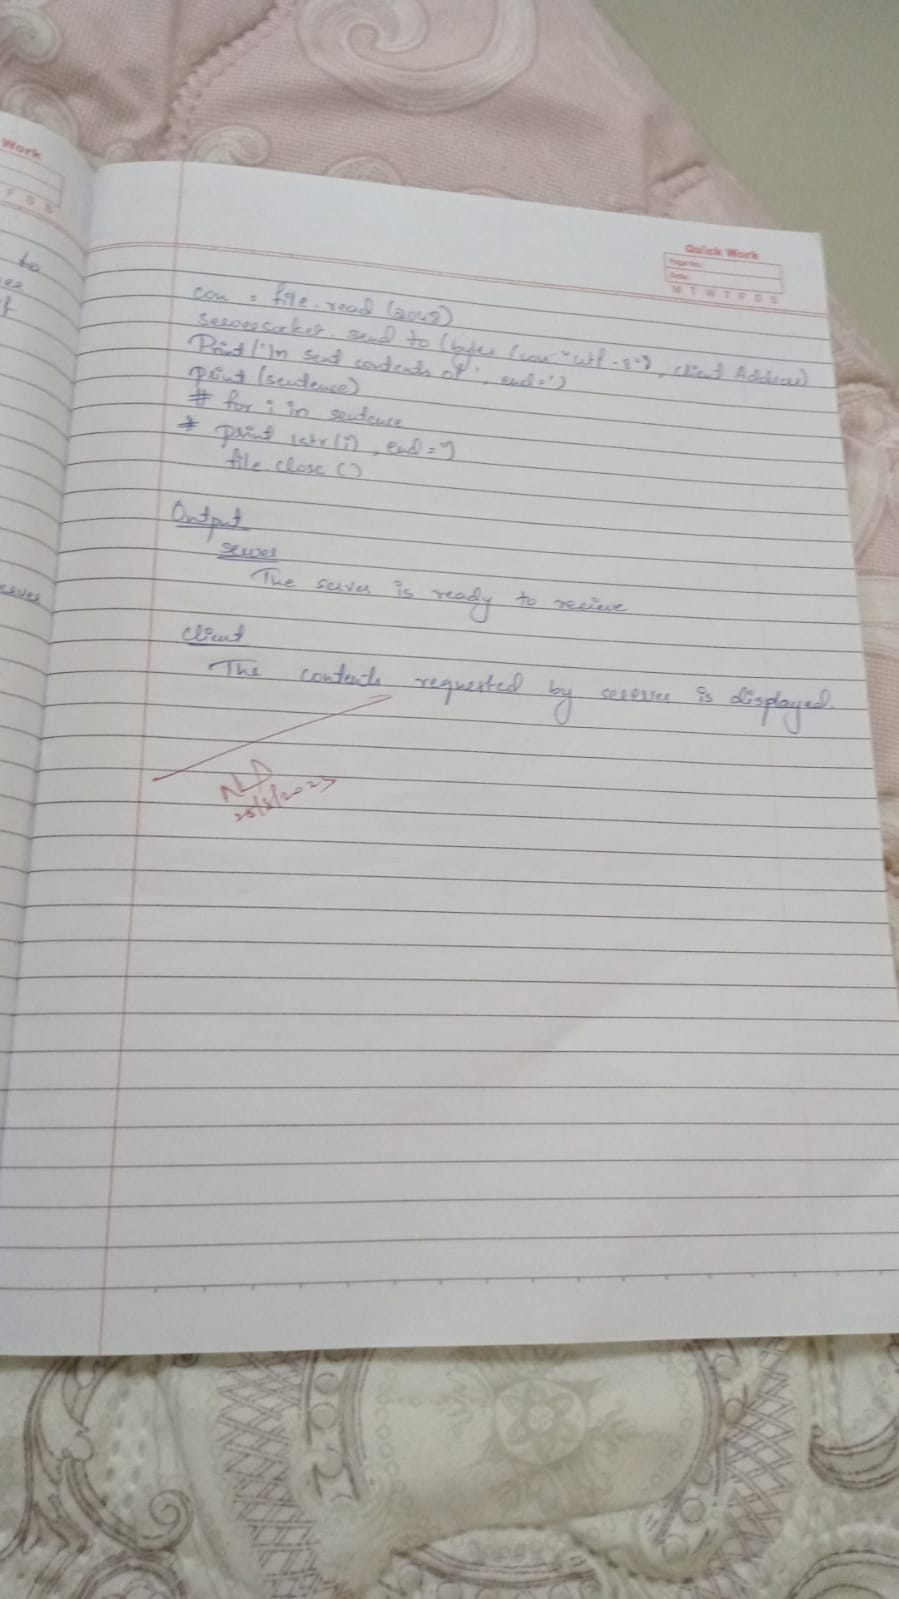 Work
F S S
to
Quick Work
Page No.
Date:
M T W T F S S
con = file.read (2048)
serversocket. send to (bytes (con "utf-8"), client Address)
Print ('\n sent contents of', end = ')
print (sentence)
# for i in sentence
# print (str (i), end = ')
file close ()
Output
server
The server is ready to recieve
client
The contents requested by server is displayed.